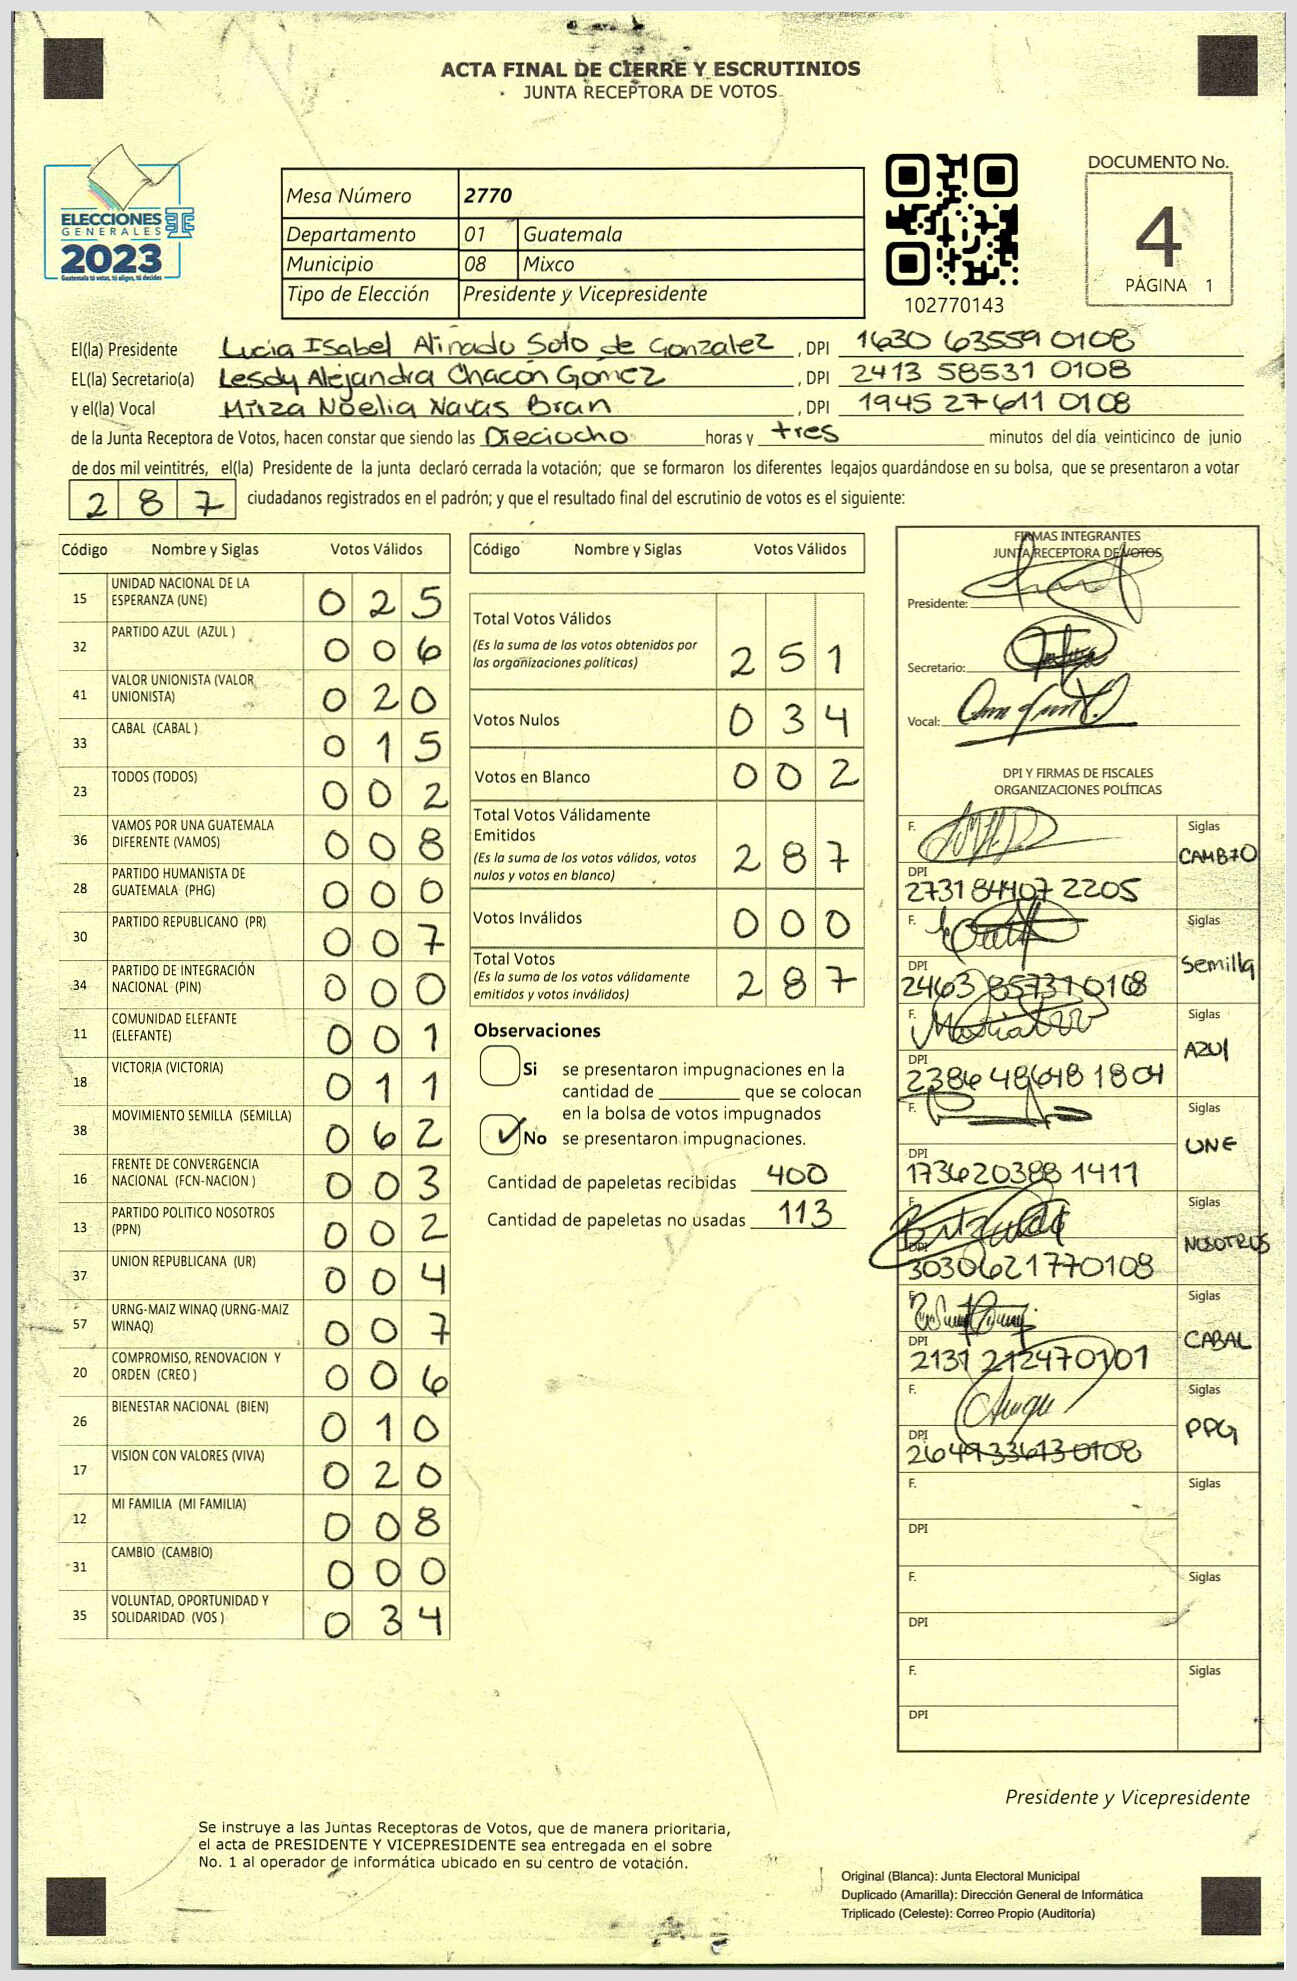 ACTA FINAL DE CIERRE Y ESCRUTINIOS
JUNTA RECEPTORA DE VOTOS
ELECCIONES
GENERALES
2023
Guatemala tú votas, tú eliges, tú decides
Mesa Número 2770
Departamento 01 Guatemala
Municipio 08 Mixco
Tipo de Elección Presidente y Vicepresidente
102770143
DOCUMENTO No.
4
PÁGINA 1
El(la) Presidente Lucia Isabel Alinado Soto de Gonzalez, DPI 1630 63559 0108
EL(la) Secretario(a) Lesdy Alejandra Chacón Gómez, DPI 2413 58531 0108
y el(la) Vocal Mirza Noelia Navas Bran, DPI 1945 27611 0108
de la Junta Receptora de Votos, hacen constar que siendo las Dieciocho horas y tres minutos del día veinticinco de junio
de dos mil veintitrés, el(la) Presidente de la junta declaró cerrada la votación; que se formaron los diferentes legajos guardándose en su bolsa, que se presentaron a votar
287 ciudadanos registrados en el padrón; y que el resultado final del escrutinio de votos es el siguiente:
Código Nombre y Siglas Votos Válidos
15 UNIDAD NACIONAL DE LA ESPERANZA (UNE) 025
32 PARTIDO AZUL (AZUL ) 006
41 VALOR UNIONISTA (VALOR UNIONISTA) 020
33 CABAL (CABAL ) 015
23 TODOS (TODOS) 002
36 VAMOS POR UNA GUATEMALA DIFERENTE (VAMOS) 008
28 PARTIDO HUMANISTA DE GUATEMALA (PHG) 000
30 PARTIDO REPUBLICANO (PR) 007
34 PARTIDO DE INTEGRACIÓN NACIONAL (PIN) 000
11 COMUNIDAD ELEFANTE (ELEFANTE) 001
18 VICTORIA (VICTORIA) 011
38 MOVIMIENTO SEMILLA (SEMILLA) 062
16 FRENTE DE CONVERGENCIA NACIONAL (FCN-NACION ) 003
13 PARTIDO POLITICO NOSOTROS (PPN) 002
37 UNION REPUBLICANA (UR) 004
57 URNG-MAIZ WINAQ (URNG-MAIZ WINAQ) 007
20 COMPROMISO, RENOVACION Y ORDEN (CREO ) 006
26 BIENESTAR NACIONAL (BIEN) 010
17 VISION CON VALORES (VIVA) 020
12 MI FAMILIA (MI FAMILIA) 008
31 CAMBIO (CAMBIO) 000
35 VOLUNTAD, OPORTUNIDAD Y SOLIDARIDAD (VOS ) 034
Código Nombre y Siglas Votos Válidos
Total Votos Válidos
(Es la suma de los votos obtenidos por las organizaciones políticas) 251
Votos Nulos 034
Votos en Blanco 002
Total Votos Válidamente Emitidos
(Es la suma de los votos válidos, votos nulos y votos en blanco) 287
Votos Inválidos 000
Total Votos
(Es la suma de los votos válidamente emitidos y votos inválidos) 287
Observaciones
Si se presentaron impugnaciones en la
cantidad de ________ que se colocan
en la bolsa de votos impugnados
No se presentaron impugnaciones.
Cantidad de papeletas recibidas 400
Cantidad de papeletas no usadas 113
FIRMAS INTEGRANTES
JUNTA RECEPTORA DE VOTOS
Presidente:
Secretario:
Vocal:
DPI Y FIRMAS DE FISCALES
ORGANIZACIONES POLÍTICAS
F. Siglas CAMBIO
DPI 2731 84407 2205
F. Siglas Semilla
DPI 2463 85731 0108
F. Siglas AZUl
DPI 2386 48648 1804
F. Siglas UNE
DPI 173620388 1411
F. Siglas NOSOTROS
DPI 3030621770108
F. Siglas CABAL
DPI 2131 212470101
F. Siglas PPG
DPI 2649336130108
F. Siglas
DPI
F. Siglas
DPI
F. Siglas
DPI
Presidente y Vicepresidente
Se instruye a las Juntas Receptoras de Votos, que de manera prioritaria,
el acta de PRESIDENTE Y VICEPRESIDENTE sea entregada en el sobre
No. 1 al operador de informática ubicado en su centro de votación.
Original (Blanca): Junta Electoral Municipal
Duplicado (Amarilla): Dirección General de Informática
Triplicado (Celeste): Correo Propio (Auditoría)